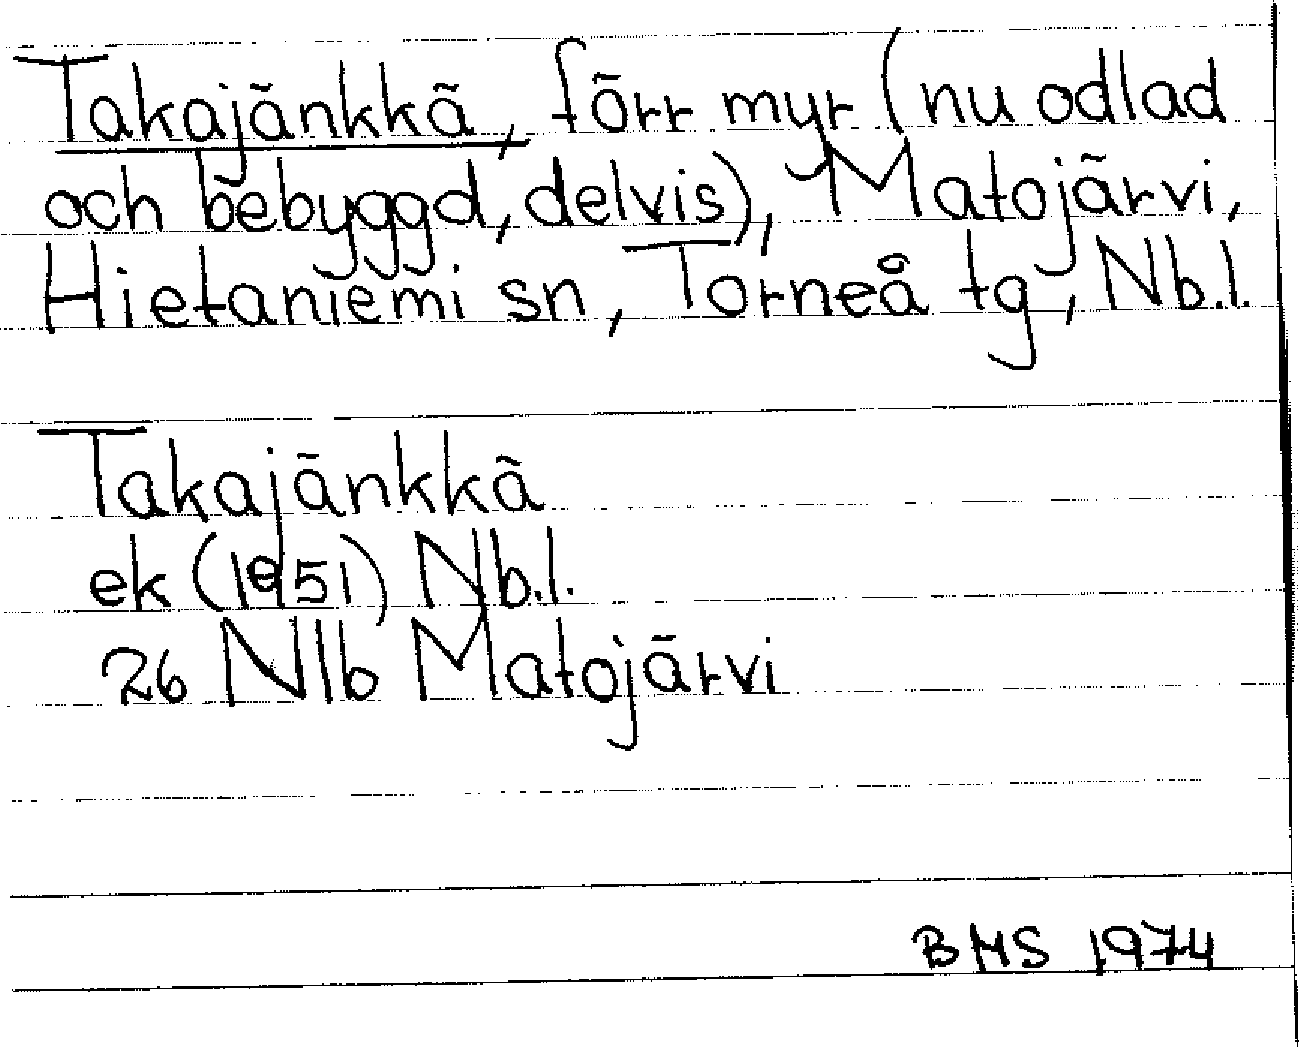 Takajänkkä, förr myr (nu odlad
och bebyggd, delvis), Matojärvi,
Hietaniemi sn, Torneå tg, Nb.l.
Takajänkkä
ek (1951) Nb.l.
26 Nlb Matojärvi
BMS 1974